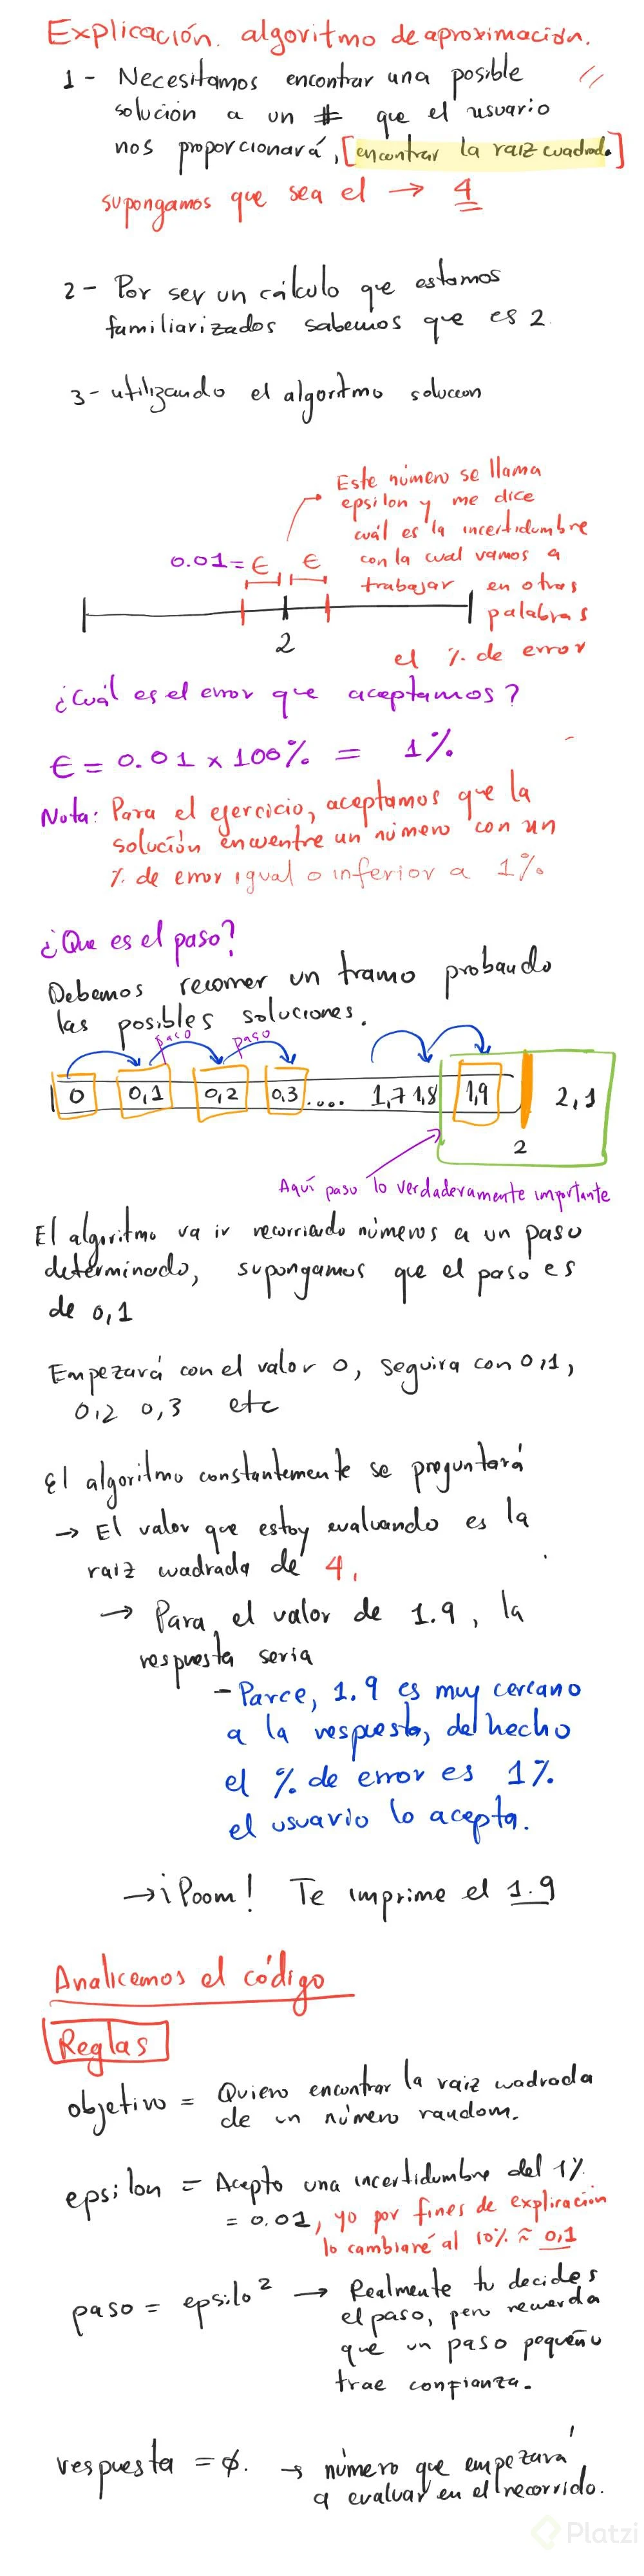 Explicación. algoritmo de aproximación.
1 - Necesitamos encontrar una posible
solución a un # que el usuario
nos proporcionará, [encontrar la raiz cuadrada]
supongamos que sea el → 4
2 - Por ser un cálculo que estamos
familiarizados sabemos que es 2.
3 - utilizando el algoritmo solucion
Este número se llama
epsilon y me dice
cuál es la incertidumbre
con la cual vamos a
trabajar en otras
palabras
el % de error
0.01 = ∈ ∈
2
¿Cuál es el error que aceptamos?
∈ = 0.01 x 100% = 1%
Nota: Para el ejercicio, aceptamos que la
solución encuentre un número con un
% de error igual o inferior a 1%.
¿Que es el paso?
Debemos recorrer un tramo probando
las posibles soluciones.
paso paso
0 0,1 0,2 0,3 .... 1,7 1,8 1,9 2,1
2
Aquí paso lo verdaderamente importante
El algoritmo va ir recorriendo números a un paso
determinado, supongamos que el paso es
de 0,1
Empezará con el valor 0, seguira con 0,1,
0,2 0,3 etc
El algoritmo constantemente se preguntará
→ El valor que estoy evaluando es la
raiz cuadrada de 4,
→ Para el valor de 1.9, la
respuesta seria
- Parce, 1.9 es muy cercano
a la respuesta, del hecho
el % de error es 1%
el usuario lo acepta.
→ ¡Poom! Te imprime el 1.9
Analicemos el código
Reglas
objetivo = Quiero encontrar la raiz cuadrada
de un número random.
epsilon = Acepto una incertidumbre del 1%
= 0.01, yo por fines de explicación
lo cambiaré al 10% ≈ 0,1
paso = epsilo² → Realmente tu decides
el paso, pero recuerda
que un paso pequeño
trae confianza.
respuesta = ø. → número que empezará
a evaluar en el recorrido.
Platzi